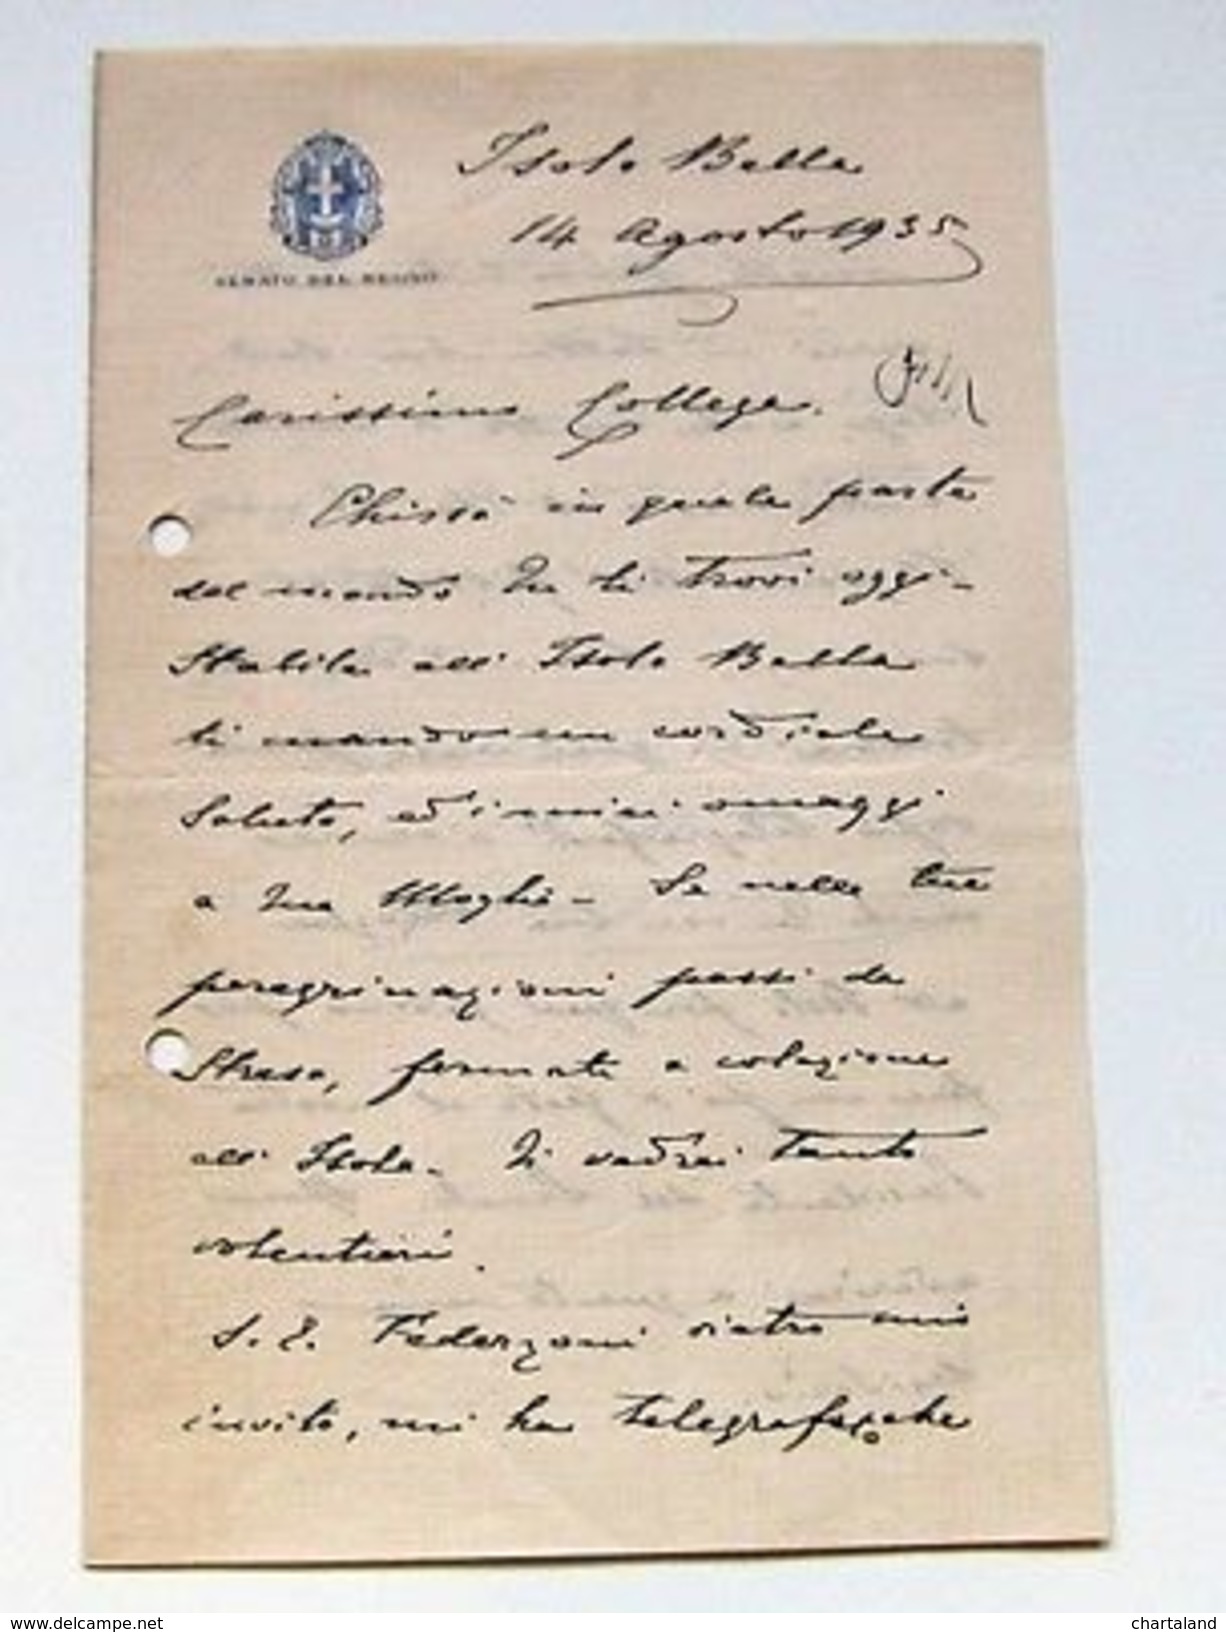 Isola Bella
14 Agosto 1935
SENATO DEL REGNO
Carissimo Collega.
Chissà in quale parte
del mondo Tu ti trovi oggi -
Stabile all' Isola Bella
ti mando un cordiale
Saluto, ed i miei omaggi
a tua Moglie - Se nelle tue
peregrinazioni passi da
Stresa, fermati a colazione
all' Isola - Ti vedrei tanto
volentieri.
S. E. Federzoni dietro mio
invito, mi ha telegrafato che
delcampe.net
chartaland